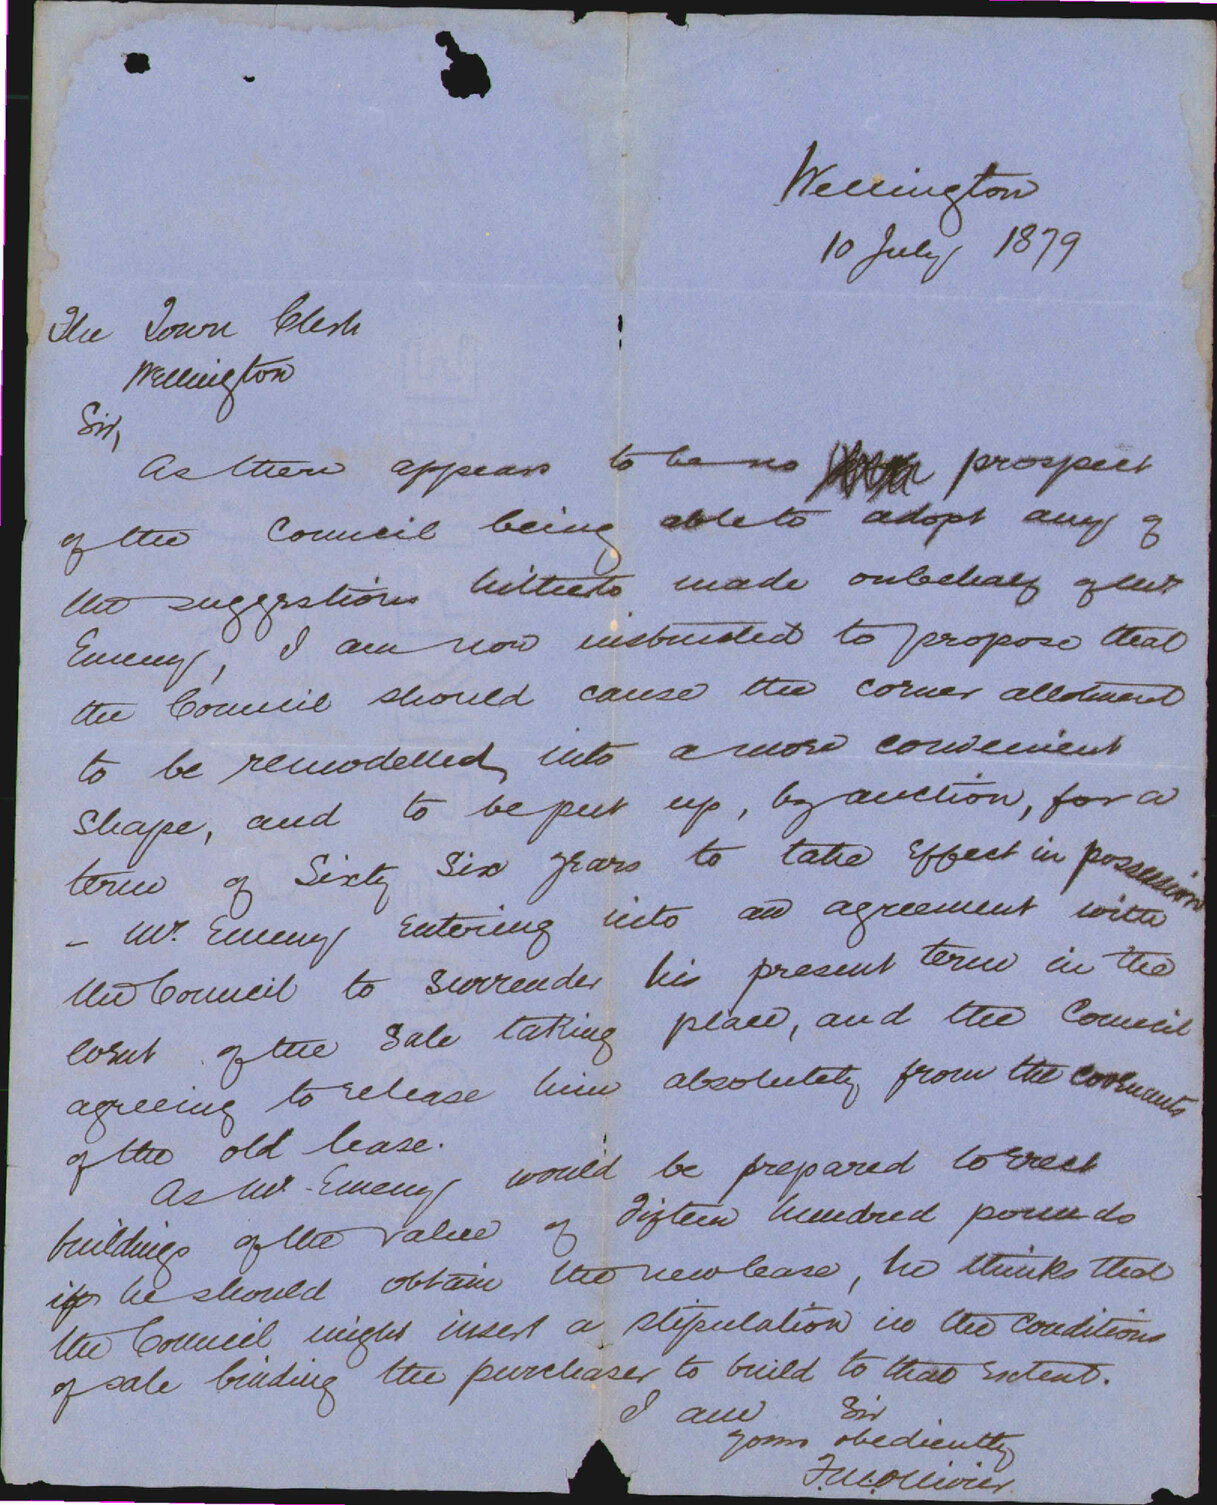 Wellington
10 July 1879
The Town Clerk
Wellington
Sir,
As there appears to be no prospect
of the Council being able to adopt any of
the suggestions hitherto made on behalf of Mr
Emeny, I am now instructed to propose that
the Council should cause the corner allotment
to be remodelled, into a more convenient
shape, and to be put up, by auction, for a
term of Sixty Six years to take effect in possession
– Mr. Emeny entering into an agreement with
the Council to surrender his present term in the
event of the sale taking place, and the Council
agreeing to release him absolutely from the covenants
of the old lease.
As Mr. Emeny would be prepared to erect
buildings of the value of Fifteen hundred pounds
if he should obtain the new lease, he thinks that
the Council might insert a stipulation in the conditions
of sale binding the purchaser to build to that extent.
I am Sir
yours obediently
F. M. Ollivier